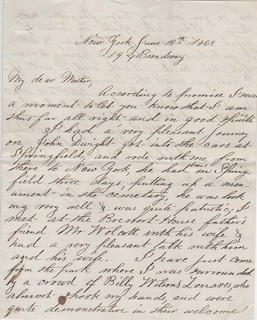 New York June 18th 1863
194 Broadway
My dear Mother,
According to promise I
a moment to let you know that I am
thus far all right and in good spirits
I had a very pleasant journey
on John Dwight got into the cars at
Springfield, and rode with me from
there to New York, he had in Spring
field three days, putting up a mon-
ument in the cemetery, he was look
ing very well & was quite patriotic, I
met at the House father's
friend Mr Wolcott with his wife &
had a very pleasant talk with him
and his wife. I have just come
from the park where I was surrounded
by a crowd of Billy Wilson's Zouaves, who
almost shook my hands, and were
quite demonstrative in their welcome